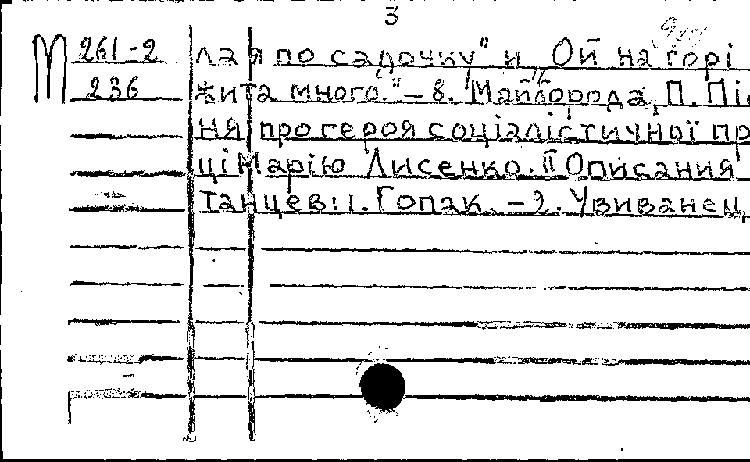 3
М 261-2 лая по садочку" и „Ой на горі
236 жита много." – 8. Майборода, П. Піс
ня про героя соціалістичної пр
ці Марію Лисенко. II Описания
танцев: 1. Гопак. – 2. Увиванец,